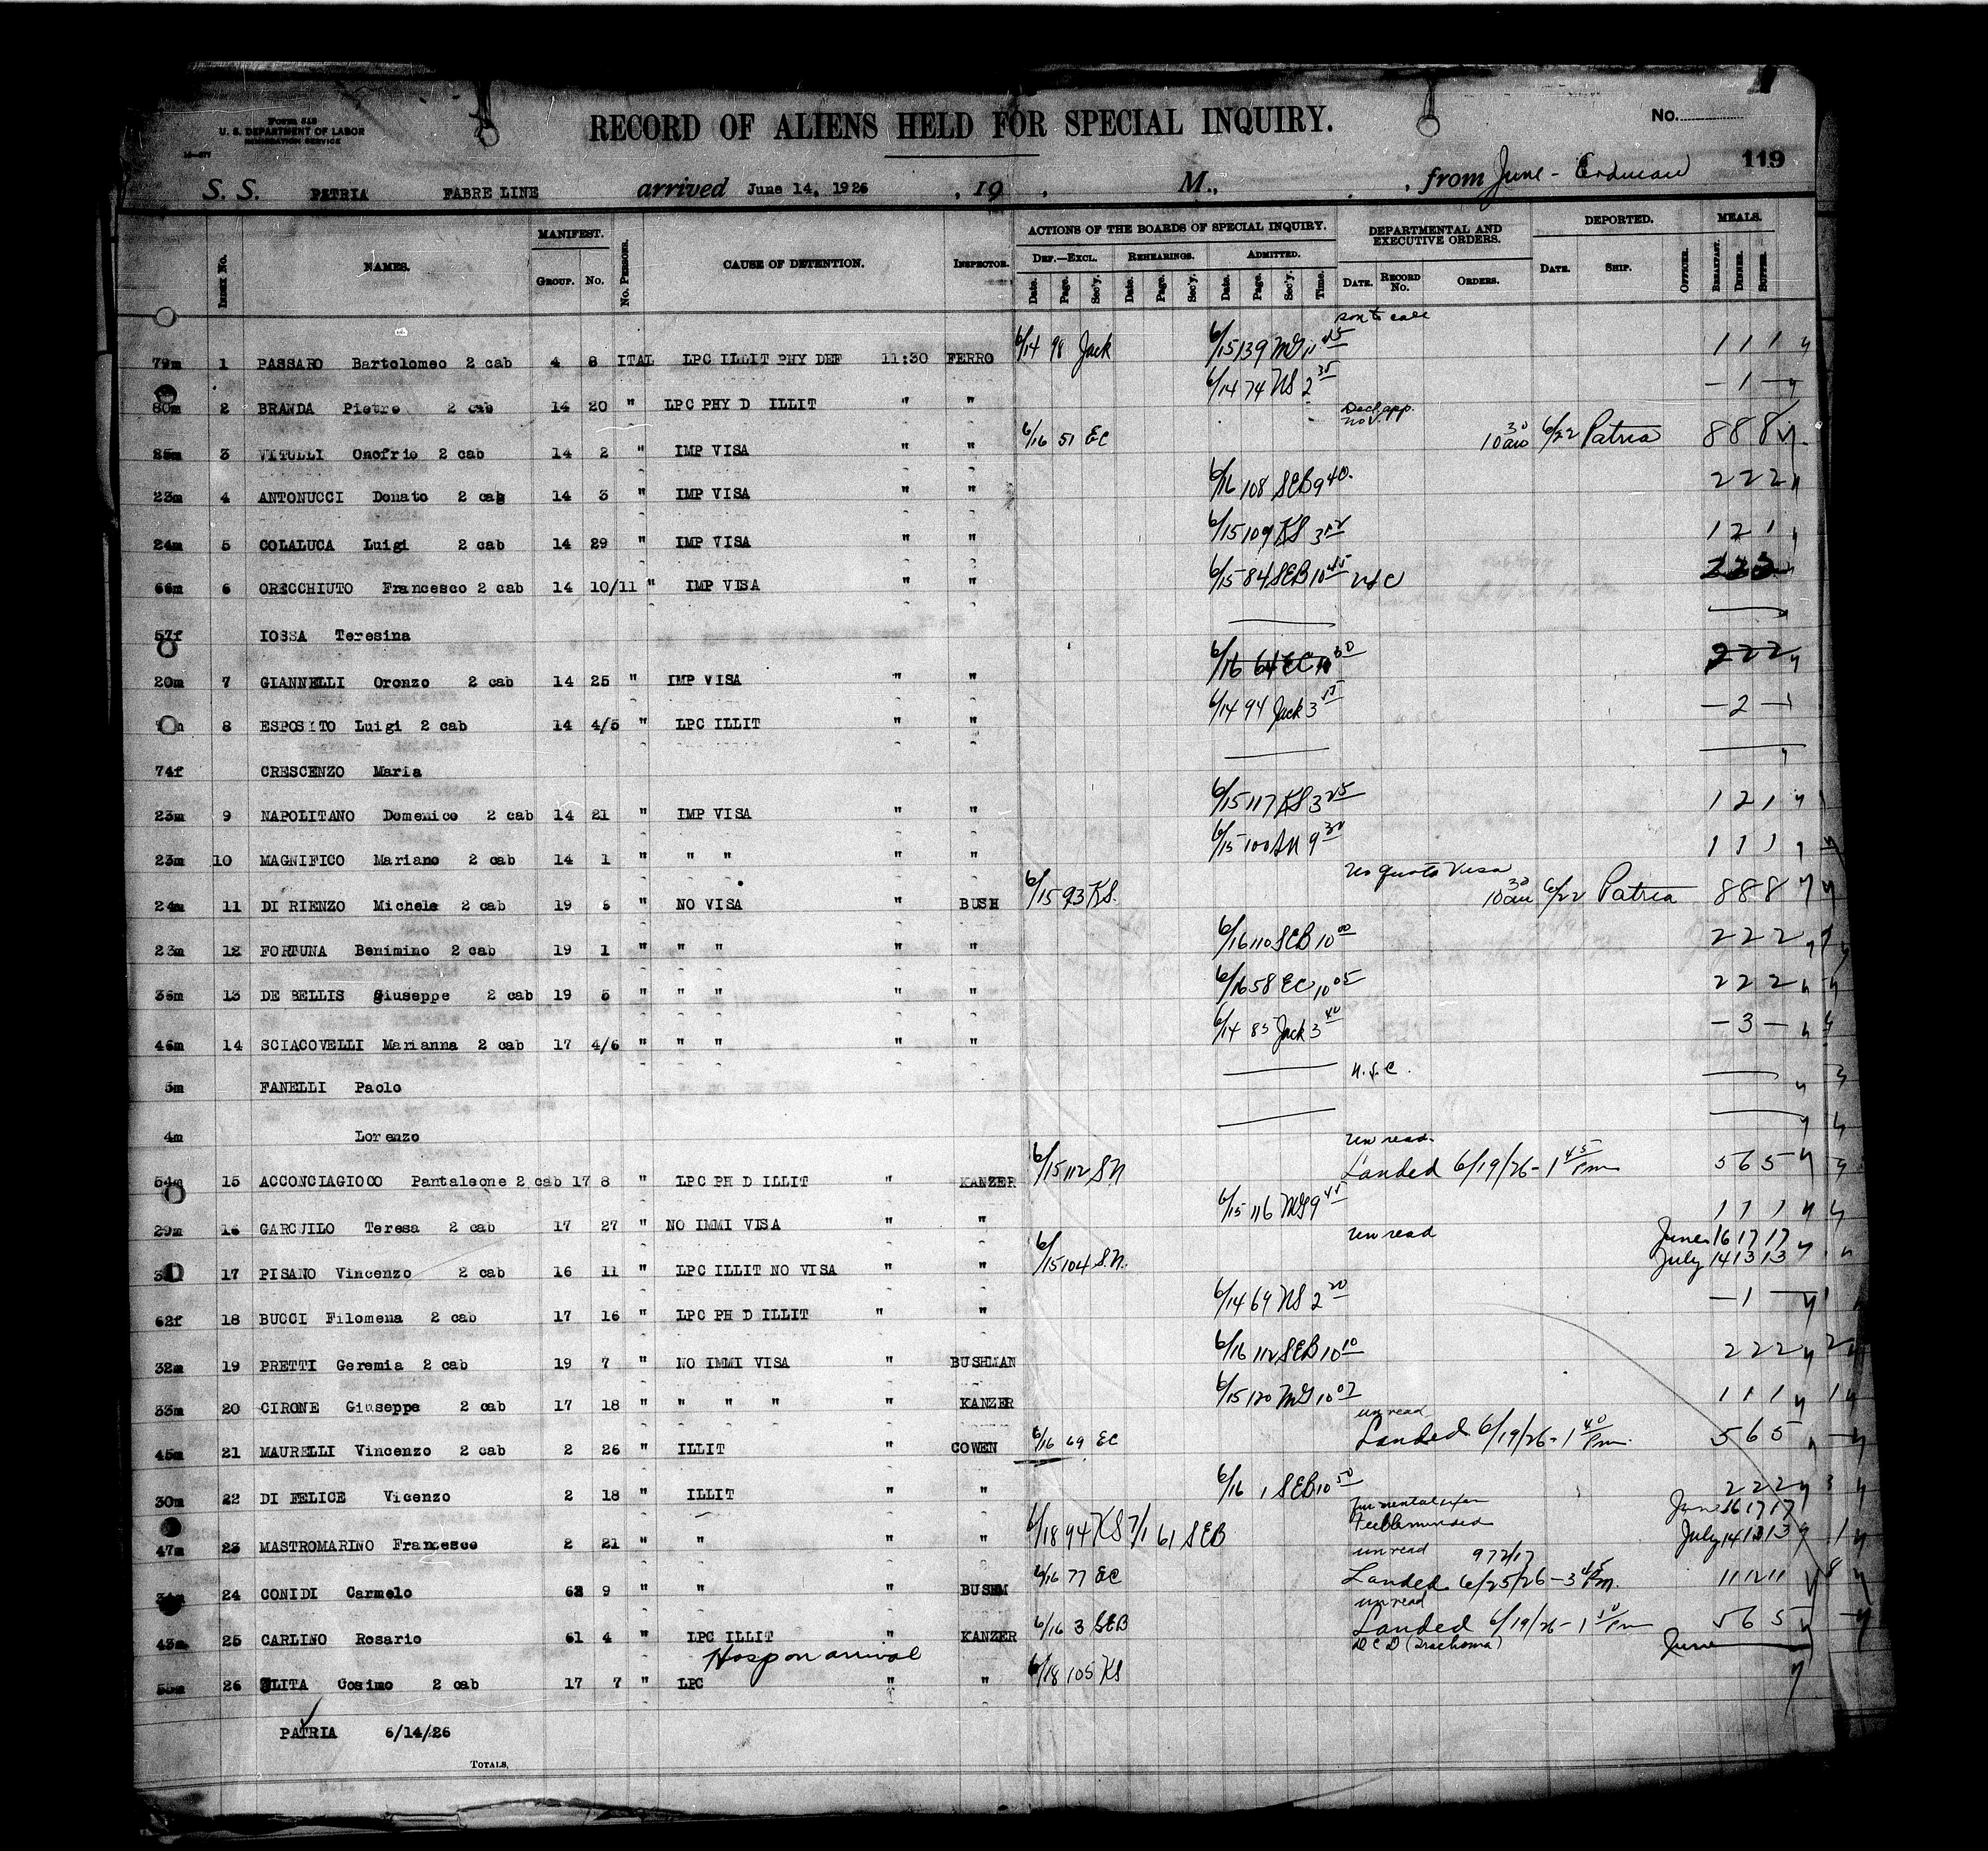 Form 518
U. S. DEPARTMENT OF LABOR
IMMIGRATION SERVICE
RECORD OF ALIENS HELD FOR SPECIAL INQUIRY.
No.
119
S. S. PATRIA FABRE LINE arrived June 14, 1926 , 19 . M., , from June - Erdman
INDEX No. NAMES. MANIFEST. GROUP. No. No. PERSONS. CAUSE OF DETENTION. INSPECTOR. ACTIONS OF THE BOARDS OF SPECIAL INQUIRY. DEF.—EXCL. REHEARINGS. ADMITTED. DEPARTMENTAL AND EXECUTIVE ORDERS. DEPORTED. MEALS.
Date. Page. Sec'y. Date. Page. Sec'y. Date. Page. Sec'y. Time. DATE. RECORD No. ORDERS. DATE. SHIP. OFFICER. BREAKFAST. DINNER. SUPPER.
79m 1 PASSARO Bartolomeo 2 cab 4 8 ITAL LPC ILLIT PHY DEF 11:30 FERRO 6/14 98 Jack 6/15 139 MG 11 45 1 1 1
80m 2 BRANDA Pietro 2 cab 14 20 " LPC PHY D ILLIT " " 6/14 74 NS 2 35 - 1 -
25m 3 VITULLI Onofrio 2 cab 14 2 " IMP VISA " " 6/16 51 EC 10 30 am 6/22 Patria 8 8 8
23m 4 ANTONUCCI Donato 2 cab 14 3 " IMP VISA " " 6/16 108 SEB 9 40 2 2 2
24m 5 COLALUCA Luigi 2 cab 14 29 " IMP VISA " " 6/15 109 KS 3 1 2 1
66m 6 ORECCHIUTO Francesco 2 cab 14 10/11 " IMP VISA " " 6/15 84 SEB 10 45
57f IOSSA Teresina
20m 7 GIANNELLI Oronzo 2 cab 14 25 " IMP VISA " " 6/16 64 EC 10 30 2 2 2
8 ESPOSITO Luigi 2 cab 14 4/5 " LPC ILLIT " " 6/14 94 Jack 3 15 - 2 -
74f CRESCENZO Maria
23m 9 NAPOLITANO Domenico 2 cab 14 21 " IMP VISA " " 6/15 117 KS 3 25 1 2 1
23m 10 MAGNIFICO Mariano 2 cab 14 1 " " " " " 6/15 100 SN 9 30 1 1 1
No quota visa
24m 11 DI RIENZO Michele 2 cab 19 6 " NO VISA " BUSH 6/15 93 KS. 10 30 am 6/22 Patria 8 8 8
23m 12 FORTUNA Benimino 2 cab 19 1 " " " " " 6/16 110 SEB 10 00 2 2 2
36m 13 DE BELLIS Giuseppe 2 cab 19 5 " " " " " 6/16 58 EC 10 05 2 2 2
46m 14 SCIACOVELLI Marianna 2 cab 17 4/6 " " " " " 6/14 85 Jack 3 40 - 3 -
5m FANELLI Paolo
4m Lorenzo
un read.
54m 15 ACCONCIAGIOCO Pantaleone 2 cab 17 8 " LPC PH D ILLIT " KANZER 6/15 112 SN Landed 6/19/26 - 1 45 Pm 5 6 5
29m 16 GARCUILO Teresa 2 cab 17 27 " NO IMMI VISA " " 6/15 116 MG 9 45 1 1 1
un read June 16 17 17
17 PISANO Vincenzo 2 cab 16 11 " LPC ILLIT NO VISA " " 6/15 104 S.N. July 14 13 13
62f 18 BUCCI Filomena 2 cab 17 16 " LPC PH D ILLIT " " 6/14 69 NS 2 20 - 1 -
32m 19 PRETTI Geremia 2 cab 19 7 " NO IMMI VISA " BUSHMAN 6/16 112 SEB 10 10 2 2 2
33m 20 CIRONE Giuseppe 2 cab 17 18 " " " " " KANZER 6/15 120 MG 10 07 1 1 1
un read
45m 21 MAURELLI Vincenzo 2 cab 2 26 " ILLIT " COWEN 6/16 69 EC Landed 6/19/26 - 1 40 Pm. 5 6 5
30m 22 DI FELICE Vicenzo 2 18 " ILLIT " " 6/16 1 SEB 10 50 2 2 2
Feebleminded June 16 17 17
47m 23 MASTROMARINO Francesco 2 21 " " " " 6/18 94 KS 7/1 61 SEB July 14 13 13
un read 972/17
24 CONIDI Carmelo 62 9 " " BUSHM 6/16 77 EC Landed 6/25/26 - 3 45 Pm. 11 12 11
un read
43m 25 CARLINO Rosario 61 4 " LPC ILLIT " KANZER 6/16 3 SEB Landed 6/19/26 - 1 50 Pm 5 6 5
Hosp on arrival D C D (Trachoma) June
55m 26 LITA Cosimo 2 cab 17 7 " LPC " " 6/18 105 KS
PATRIA 6/14/26
TOTALS,